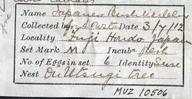 Name Japanese Bush Warbler
Collected by 3/7/12
Locality Fuji Hondo Japan
Set Mark M Incub. Fresh
No of Eggs in set 6 Identity Sure
Nest On Utsugi Tree
MVZ 10506